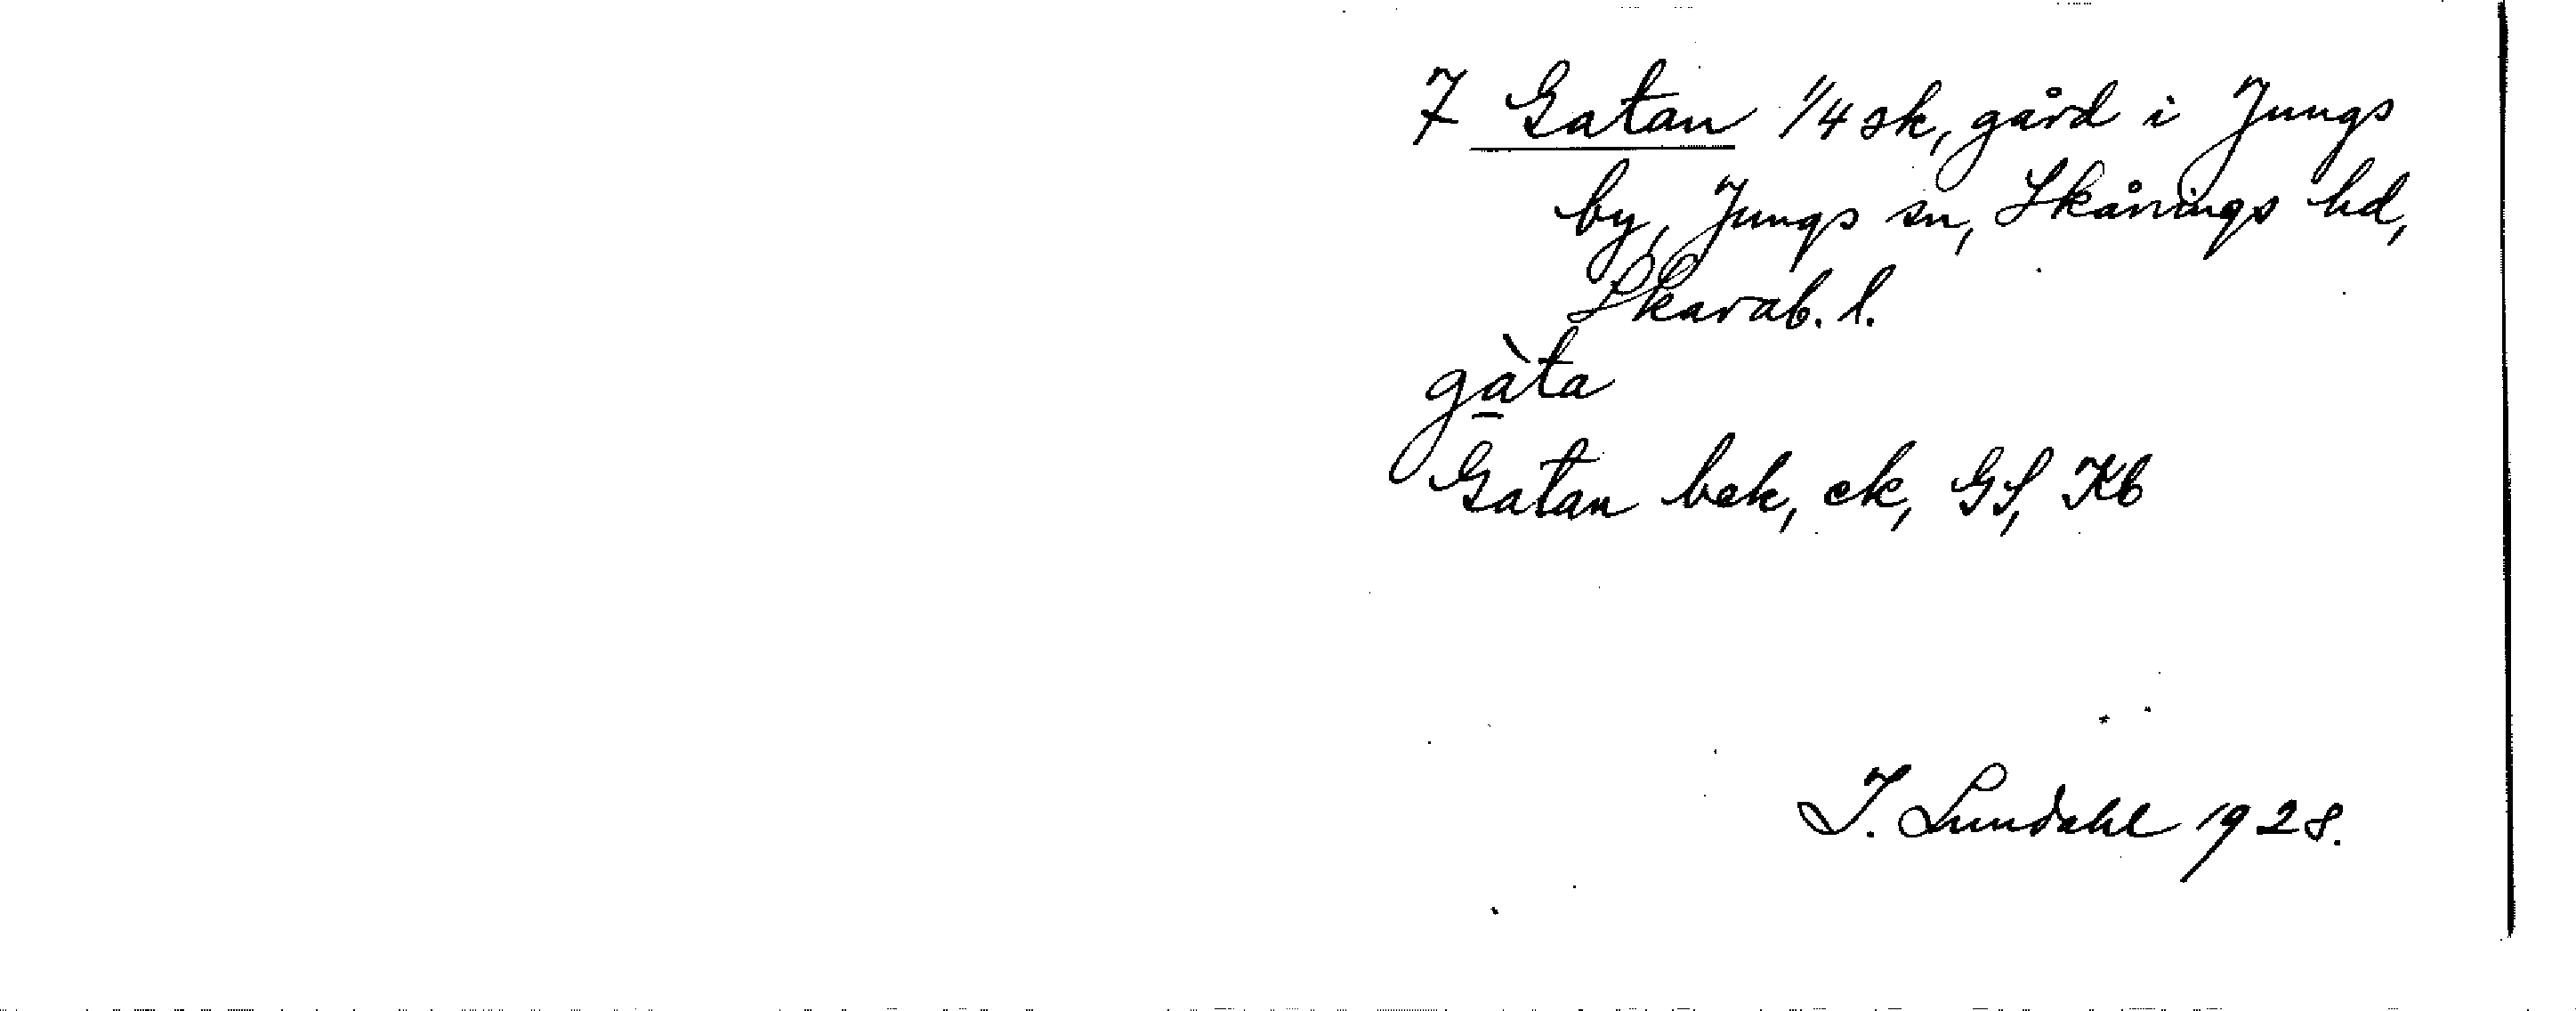 7 Gatan 1/4 sk, gård i Jungs
by, Jungs sn, Skånings hd,
Skarab. l.
gàta
Gatan bek, ek, GS, Kb
I. Lundahl 1928.